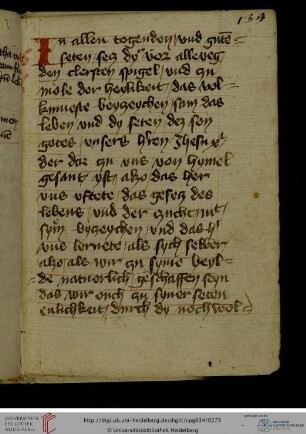 134
In allen togenden / vnd gute=
seten secz dyr vor alleweg
den clersten spigel / vnd zu
mole der heylikeit / das vol=
kumeste beyzeychen / sam das
leben / vnd dy seten dez son
gotes / vnsers hren Jhesu xpi
der dor zu vns von hymel
gesant yst / also das her
vns vftete das gesecz des
lebens / vnd der zucht / mit
sym beyzeychen / vnd das h'
vns lernete als sych selber
also als wir zu syme beyl=
de naturlich geschaffen seyn
das wir ouch zu syner seten
enlichkeit / durch dy nochvol=
UNIVERSITÄTS-
BIBLIOTHEK
HEIDELBERG
http://digi.ub.uni-heidelberg.de/diglit/cpg634/0273
© Universitätsbibliothek Heidelberg